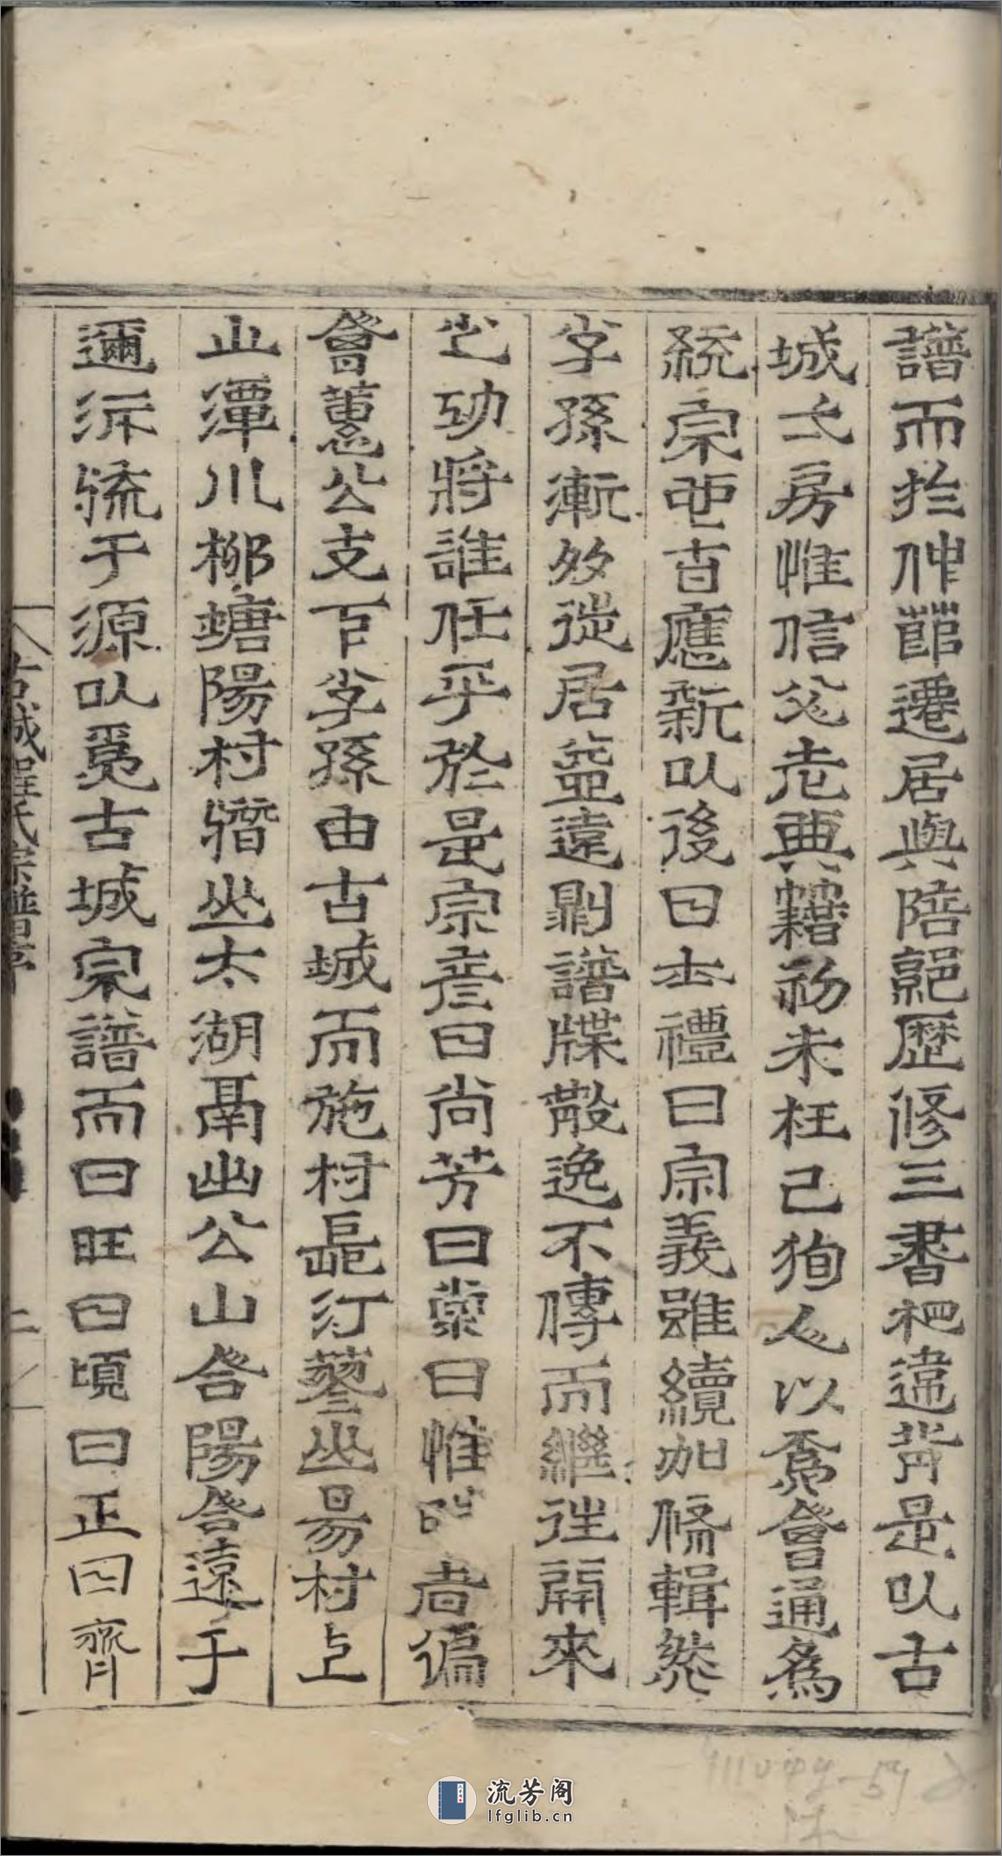 譜而於仲節遷居與陪郢歷修三書祀違背是以古
城之房惟信父老典籍初未枉己狥人以爲會通爲
統宗也者應新以後曰士禮曰宗義雖續加脩輯然
子孫漸多徙居益遠則譜牒散逸不傳而繼往開來
之功將誰任乎於是宗彥曰尚芳曰棠曰惟昭者徧
會蕙公支下子孫由古城而施村長汀蓼山易村上
山潭川柳塘陽村潛山太湖鬲幽公山含陽含遠于
邇泝流于源以爲古城宗譜而曰旺曰頃曰正曰齊
古城程氏宗譜序
流芳阁
lfglib.cn